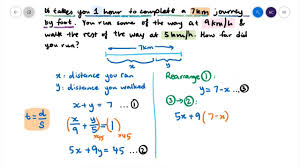 It takes you 1 hour to complete a 7km journey
by foot. You run some of the way at 9km/h &
walk the rest of the way at 5km/h. How far did
you run?
7km
x y
x : distance you ran
y : distance you walked
x + y = 7 ... ①
t = d/s
(x/9 + y/5 = 1)
×45 ×45
5x + 9y = 45 ... ②
Rearrange ① :
y = 7 - x ... ③
③ → ② :
5x + 9 (7 - x)